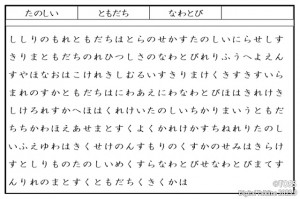 たのしい ともだち なわとび
ししりのもれともだちはとらのせかすたのしいにらせしす
きりまともだちのれひつしさのなわとびれりふうへよえん
すやほなおはこけれきしむるいすきりまけくきすきすいら
まれのすかともだちはにわあえにわなわとびほはきれけき
しけろれすかへほはくれけいたのしいちかりまいうともだ
ちちかわほえあせまとすくよくかれけかすちねれりたのし
いふえゆわはきくせけのんすもりのくすかのせみはきらけ
すとしりものたのしいめくすらなわとびせなわとびまてす
んりれのまとすくともだちくきくかは